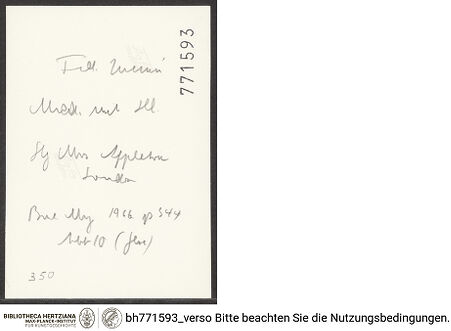 771593
Fed. Zuccari
Mad. mit Hl.
Slg Mrs Appleton
London
Bur Mag 1966 p 544
Abb 10
350
BIBLIOTHECA HERTZIANA
MAX-PLANCK-INSTITUT
FÜR KUNSTGESCHICHTE
bh771593_verso Bitte beachten Sie die Nutzungsbedingungen.